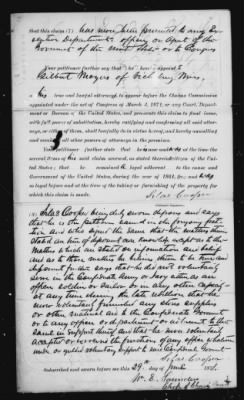 that this claim (7) has never been presented to any Ex-
ecutive Department, officer, or agent of the
Government of the United States or to Congress
Your petitioner further say that he here appoint
Gilbert Moyers of Vicksburg Miss,
his true and lawful attorney to appear before the Claims Commission
appointed under the act of Congress of March 3, 1871, or any Court, Depart-
ment or Bureau of the United States, and prosecute this claim to final issue,
with full power of substitution, hereby ratifying and confirming all said attor-
neys, or either of them, shall lawfully do in virtue hereof, and hereby cancelling
and annulling all other powers of attorney in the premises.
Your petitioner further state that he was at the
several times of the said claim accrued, as stated therein of the
United States; that he remained loyal adherent to the cause and
Government of the United States, during the war of 1861, &c; and was
so loyal before and at the time of the taking or furnishing of the property for
which this claim is made.
Silas Cooper
(8) Silas Cooper being duly sworn, deposes and says
that he is the petitioner named in the foregoing peti-
tion and who signed the same that the matters therein
stated are true of deponent's own knowledge except as to the
matters which are stated on information and belief
and as to those matters he believes them to be true and
deponent further says that he did not voluntarily
serve in the Confederate Army or Navy either as an
officer soldier or sailor or in any other capacity
at any time during the late rebellion that he
never voluntarily furnished any stores supplies
or other material aid to the Confederate Government
or to any officer or department or adherent to the
same in support thereof and that he never voluntarily
accepted or exercised the functions of any office whatsoever
under or yielded voluntary support to said Confederate Government
Silas Cooper
Subscribed and sworn before me this 29 day of June 187
W. E.
Clerk of